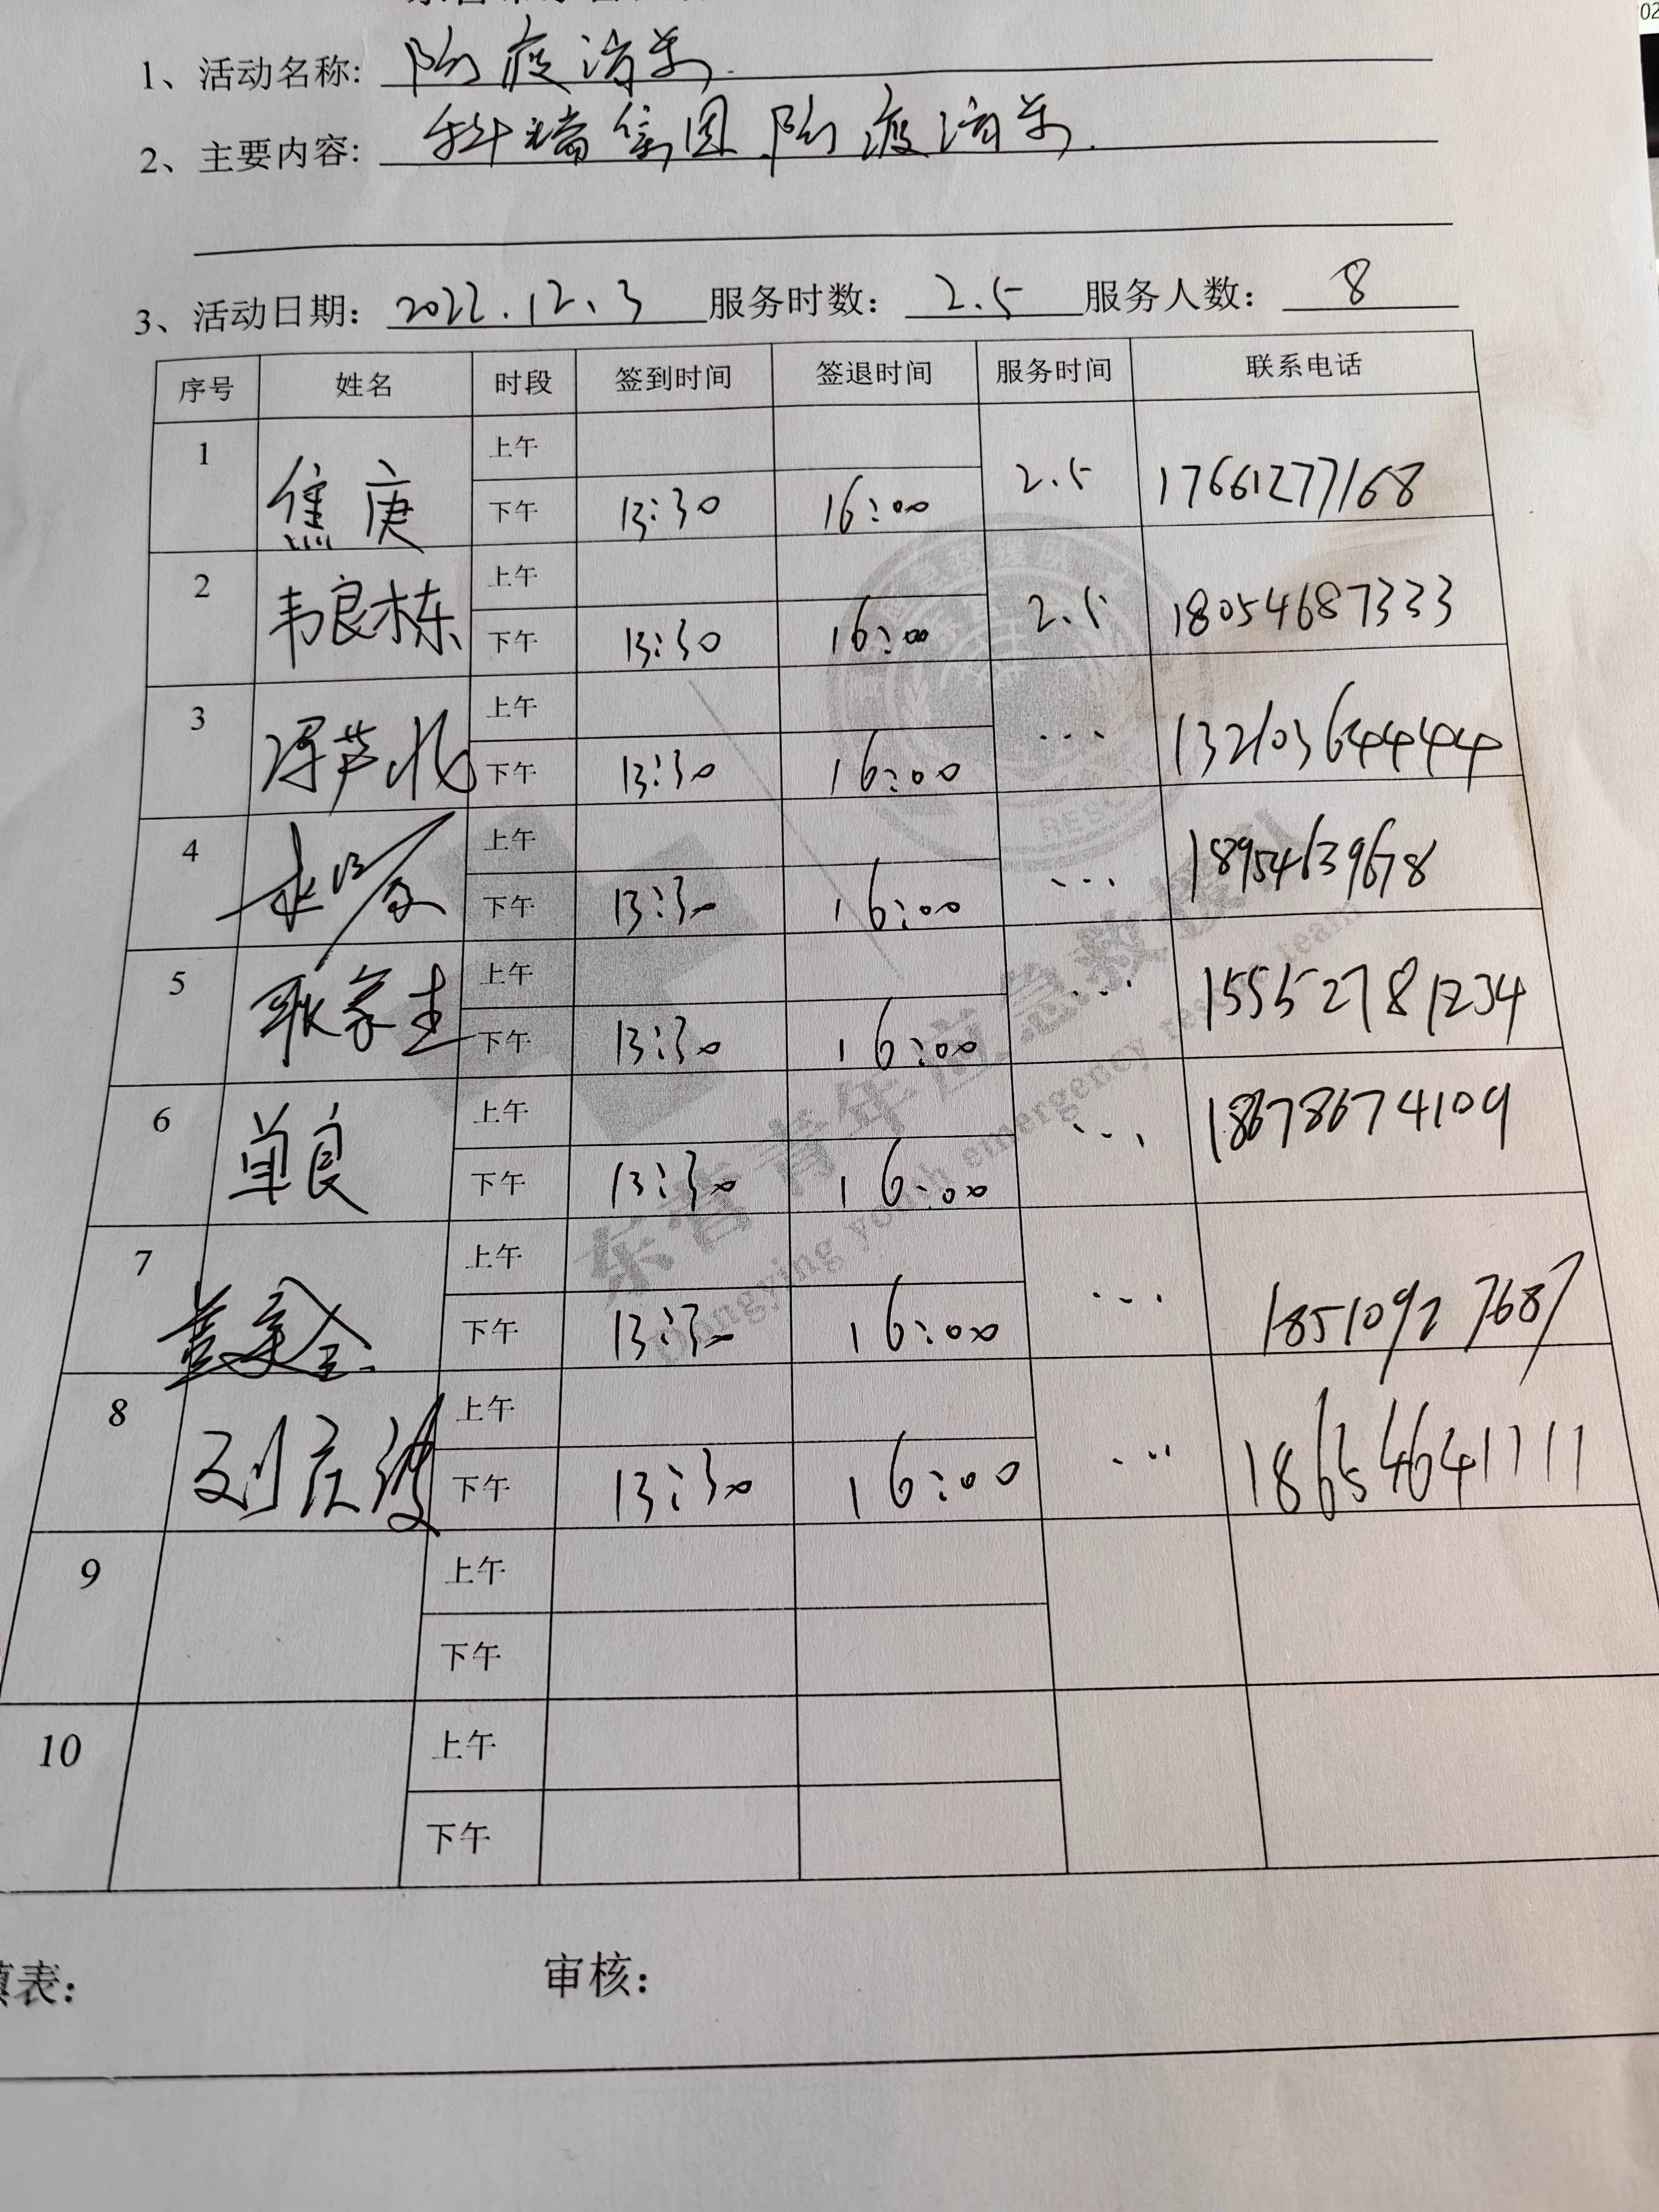 1、活动名称: 防疫消杀.
2、主要内容: 科瑞集团防疫消杀.
3、活动日期: 2022.12.3 服务时数: 2.5 服务人数: 8
序号 姓名 时段 签到时间 签退时间 服务时间 联系电话
1 焦庚 上午 2.5 17661277168
下午 13:30 16:00
2 韦良栋 上午 2.5 18054687333
下午 13:30 16:00
3 上午 ... 13210364444
下午 13:30 16:00
4 上午 ... 18954639678
下午 13:30 16:00
5 耿家生 上午 ... 15552781234
下午 13:30 16:00
6 单良 上午 ... 18678674109
下午 13:30 16:00
7 上午 ... 18510927687
下午 13:30 16:00
8 刘庆波 上午 ... 18654641111
下午 13:30 16:00
9 上午
下午
10 上午
下午
填表: 审核:
东营青年应急救援队
Dongying youth emergency rescue team